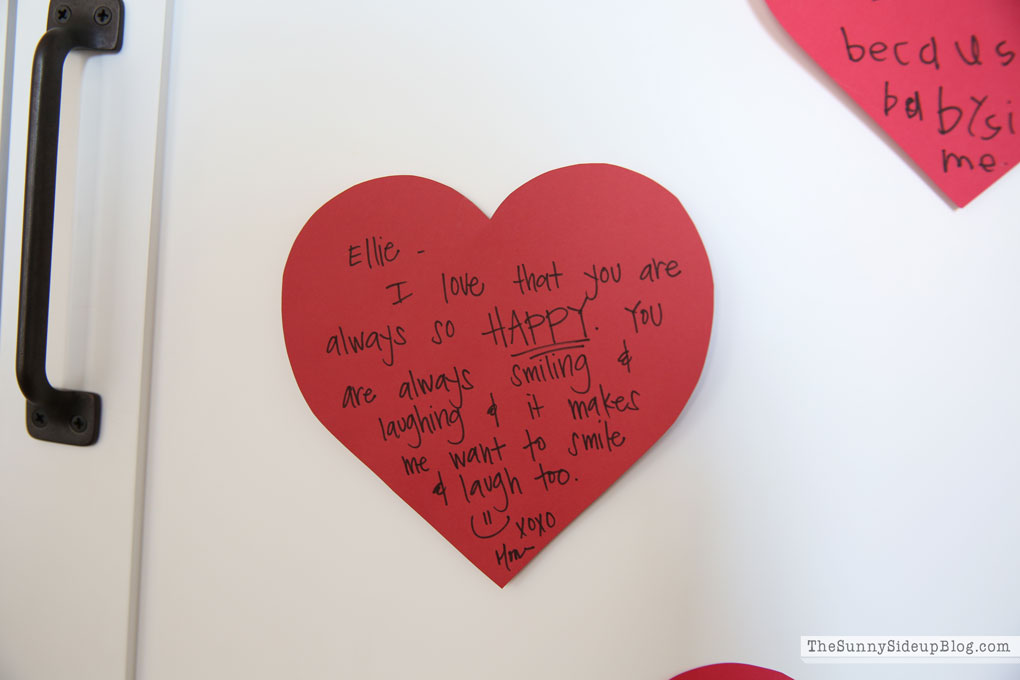 Ellie -
I love that you are
always so HAPPY. You
are always smiling &
laughing & it makes
me want to smile
& laugh too.
xoxo
Mom
becaus
babysi
me.
TheSunnySideupBlog.com